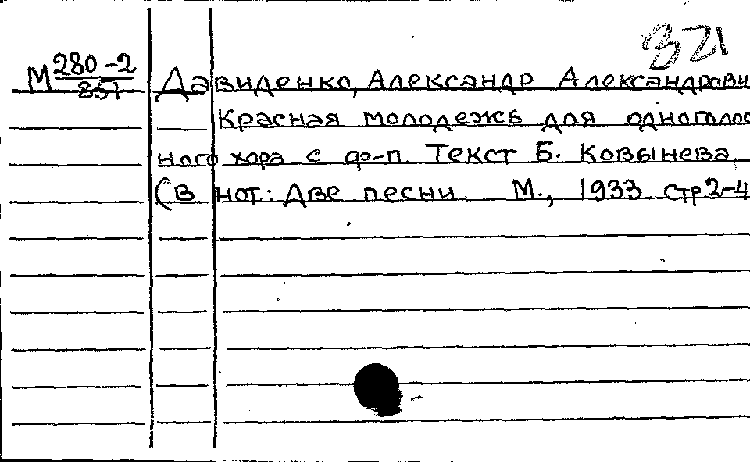 321
М 280-2 Давиденко, Александр Александрови
857
Красная молодежь для одноголос
ного хора с ф-п. Текст Б. Ковынева
(В нот.: Две песни М., 1933 стр 2-4